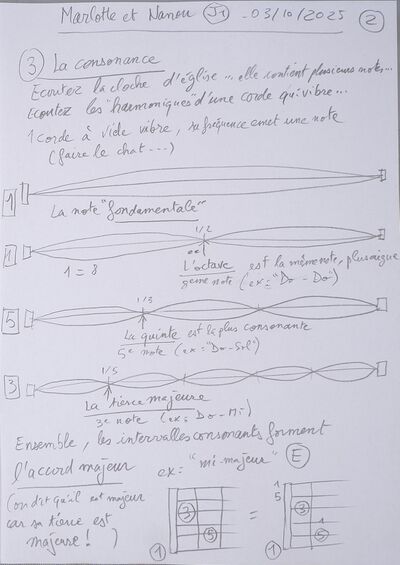 Marlotte et Nanou J1 - 03/10/2025 2
3 La consonance
Ecoutez la cloche d'église... elle contient plusieurs notes...
Ecoutez les "harmoniques" d'une corde qui vibre...
1 corde à vide vibre, sa fréquence émet une note
(faire le chat ---)
1
La note "fondamentale"
1 1/2
1 = 8 L'octave est la même note, plus aigue
8eme note (ex = "Do - Do")
5 1/3
La quinte est la plus consonante
5e note (ex = "Do - Sol")
3 1/5
La tierce majeure
3e note (ex = Do - Mi)
Ensemble, les intervalles consonants forment
l'accord majeur ex = "mi-majeur" E
(on dit qu'il est majeur
car sa tierce est
majeure ! )
3 5 1
=
1 5 3 1 5 1